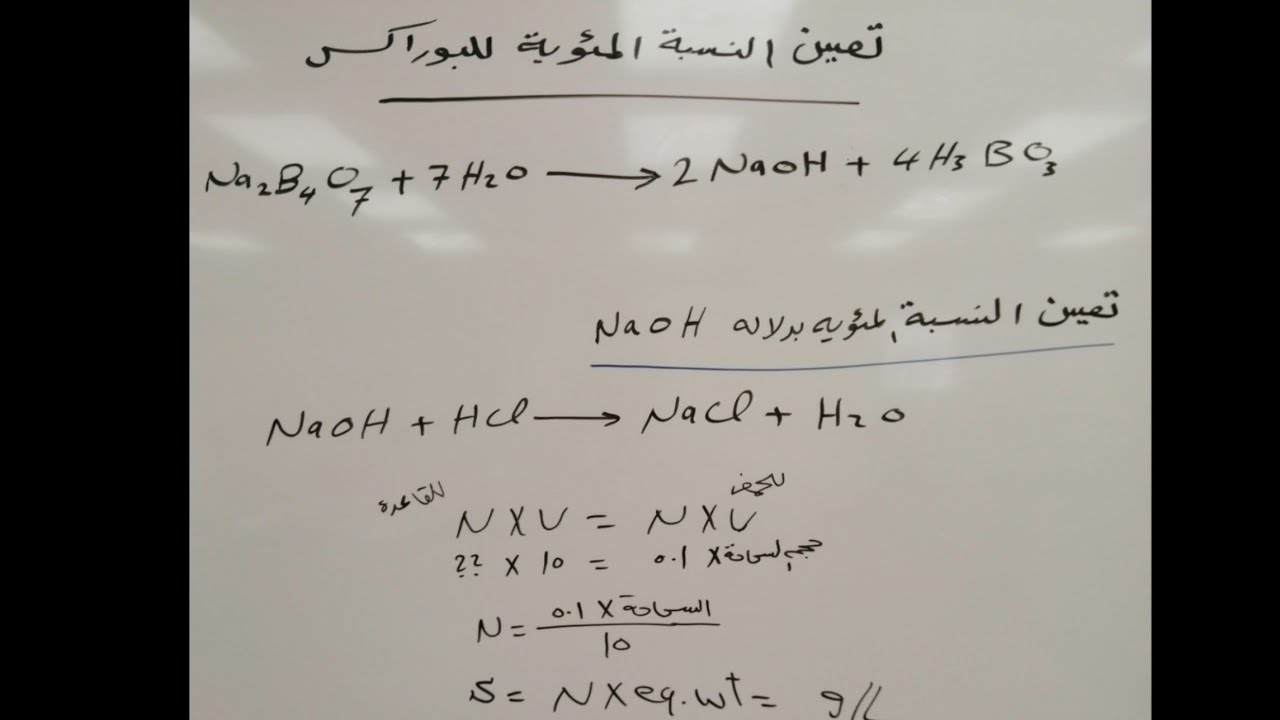 تعيين النسبة المئوية للبوراكس
Na₂B₄O₇ + 7H₂O → 2 NaOH + 4H₃BO₃
تعيين النسبة المئويه بدلاله NaOH
NaOH + HCl → NaCl + H₂O
للقاعدة للحمض
N X V = N X V
?? X 10 = 0.1 X حجم السحاحة
N = 0.1 X السحاحة / 10
S = N X eq.wt = g/L